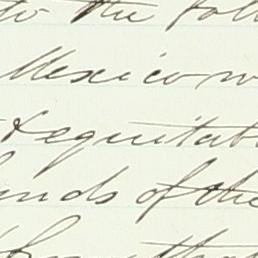 to the foll
Mexico w
& equitab
ands of the